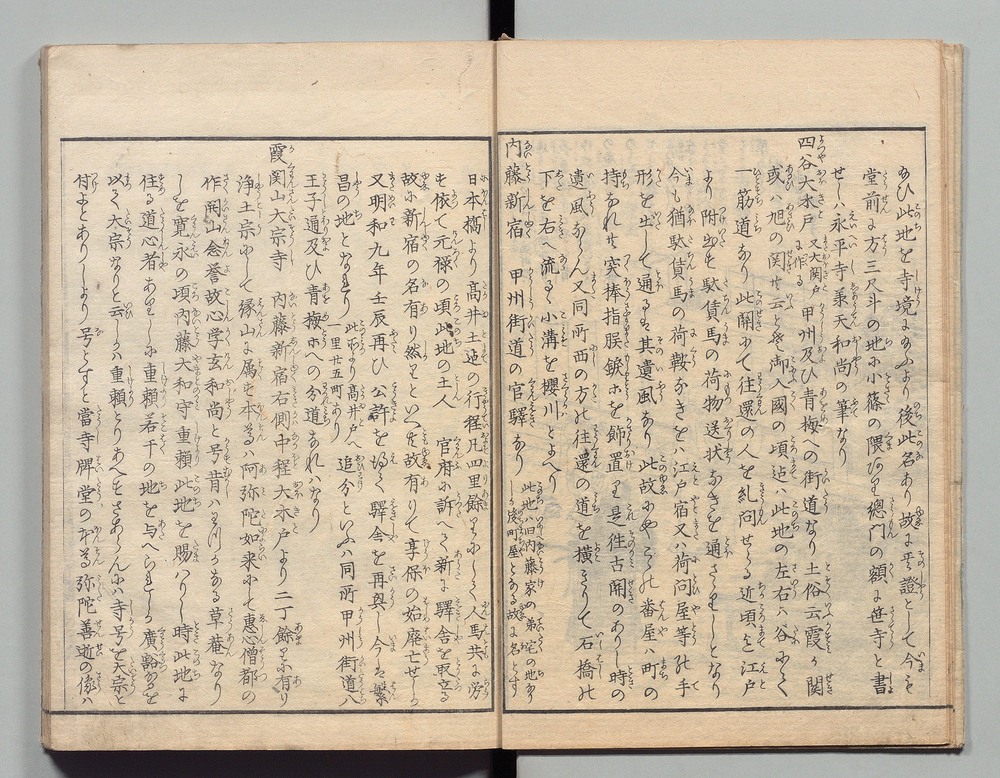 あひ此地を寺境にあふより後此名あり故に其證として今も
堂前の方三尺斗の地に小篠の隈ひあり總門の額に笹寺と書
せしハ永平寺乗天和尚の筆なり
四谷大木戸 大関戸に作る 甲州及ひ青梅への街道なり土俗云霞ヶ関
或ハ旭の関共云とそ御入國の頃迠ハ此地の左右ハ谷にて
一筋道なり此関にて往還の人を糺問せらる近頃迄江戸
より附出す駄賃馬の荷物送状なきを通さゝりしとなり
今も猶駄賃馬の荷鞍なきをハ江戸宿又ハ荷問屋等の手
形を出して通るは其遺風なり此故にやこゝの番屋ハ町の
持なれ共突棒指股錑ホを飾置り是往古関のありし時の
遺風ならん又同所西の方の往還の道を横きりて石橋の
下を右へ流るゝ小溝を櫻川とよへり
内藤新宿 甲州街道の官驛なり 此地ハ旧内藤家の第宅の地なり
しか後町屋となる故に名とす
日本橋より高井土迠の行程凡四里餘りにして人馬共に労
も依て元禄の頃此地の土人 官府に訴へて新に驛舎を取立る
故に新宿の名有り然るといへとも故有りて享保の始廃亡せしか
又明和九年壬辰再ひ 公許を得て驛舎を再興し今は繁
昌の地となれり 此所より高井戸へ
里廿五町あり 追分といふハ同所甲州街道八
王子通及ひ青梅ホへの分道なれハなり
霞関山大宗寺 内藤新宿右側中程大木戸より二丁餘りに有り
浄土宗にして縁山に属す本尊ハ阿弥陀如来にして恵心僧都の
作開山念誉故心学玄和尚と号昔ハ草庵なり
しを寛永の頃内藤大和守重頼此地を賜ハりし時此地に
住る道心者ありしに重頼若干の地を与へらる
以て大宗なりと云しかハ重頼とりあへすさあらんにハ寺号を大宗と
付よとありしより号とすと當寺牌堂の本尊弥陀善逝の像ハ